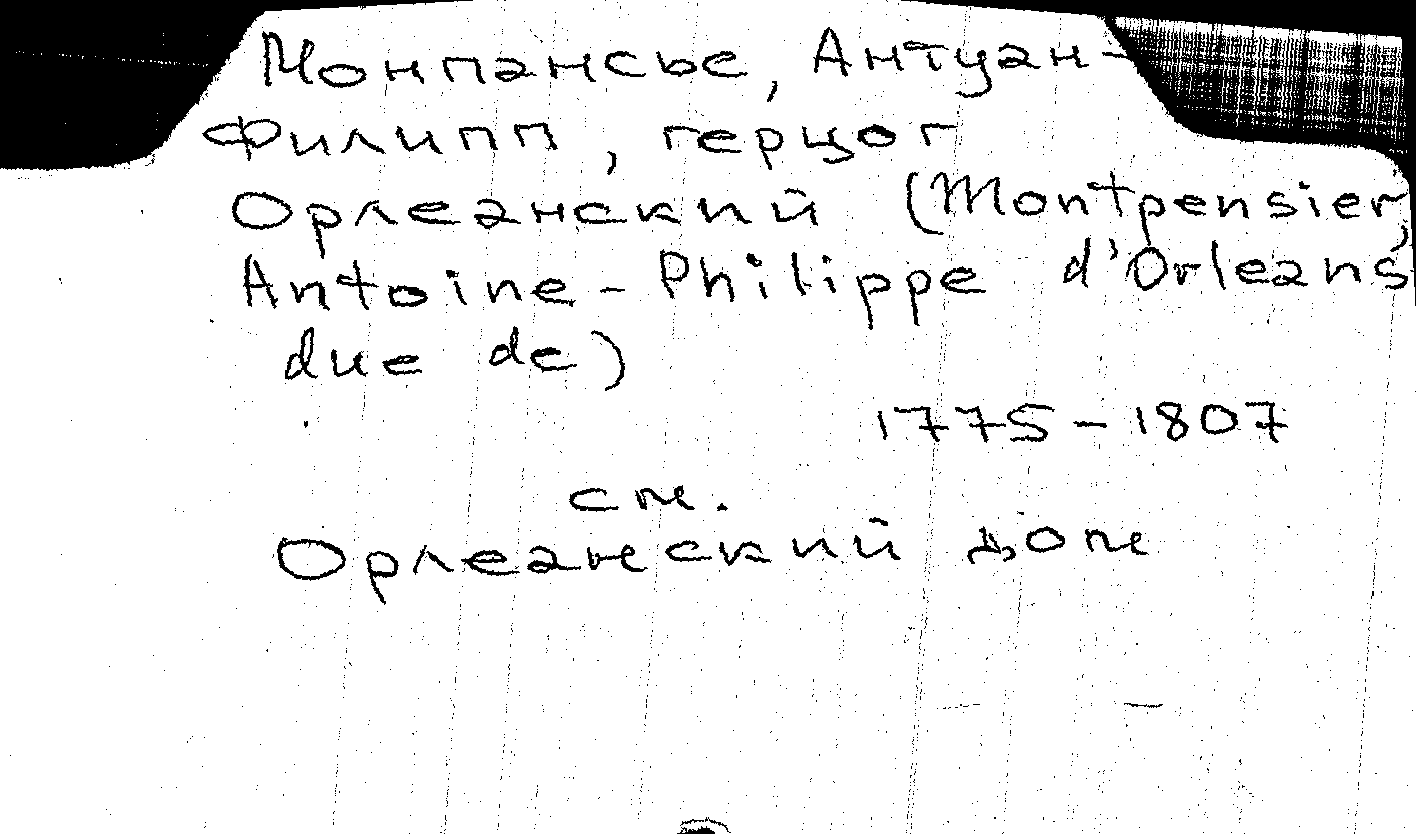 Монпансье, Антуан-
Филипп, герцог
Орлеанский (Montpensier,
Antoine-Philippe d'Orleans
due de)
1775-1807
см.
Орлеанский дом